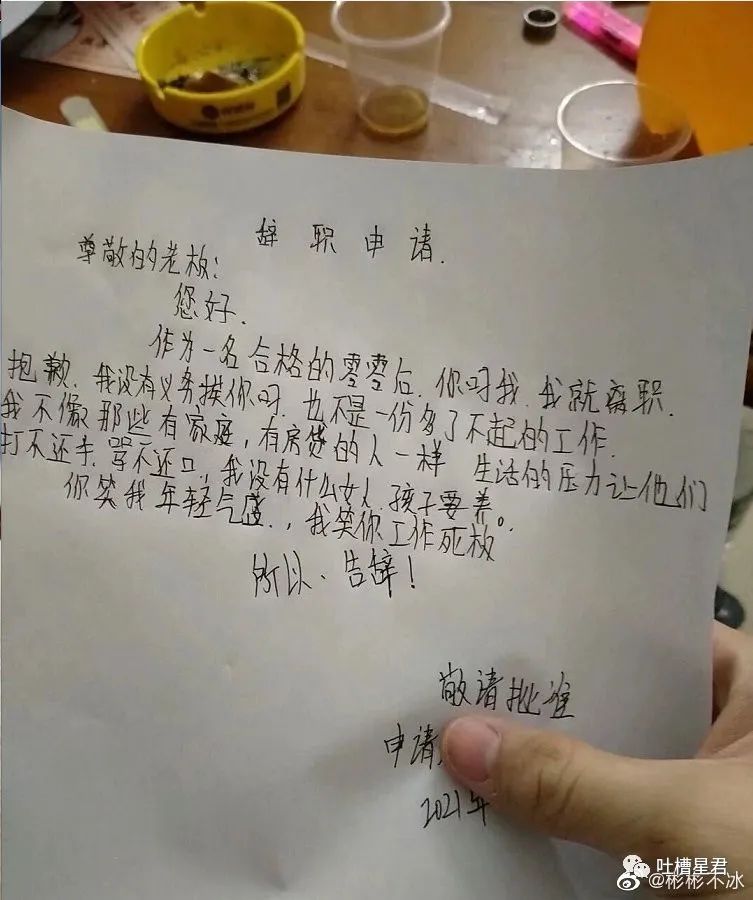 辞职申请.
尊敬的老板:
您好.
作为一名合格的零零后.你呼我.我就离职.
抱歉.我没有义务挨你呼.也不是一份多了不起的工作.
我不像那些有家庭,有房贷的人一样 生活的压力让他们
打不还手.骂不还口,我没有什么女人.孩子要养。
你笑我年轻气盛.,我笑你工作死板
所以、告辞!
敬请批准
申请
2021年
吐槽星君
@彬彬不冰